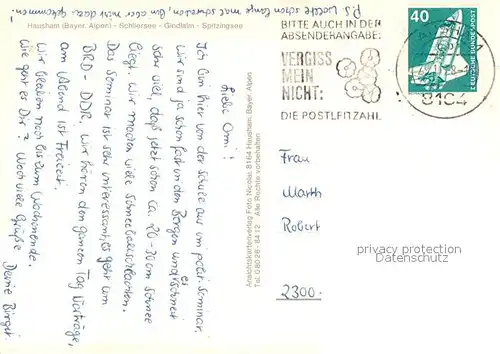 P.S. Wollte schon lange mal schreiben. Bin aber nicht dazu gekommen!
Hausham (Bayer. Alpen) - Schliersee - Gindlalm - Spitzingsee
Liebe Omi!
Ich bin hier von der Schule aus im polit. Seminar.
Wir sind ja schon fast in den Bergen und es schneit
sehr viel, daß jetzt schon ca. 20-30 cm Schnee
liegt. Wir machen viele Schneeballschlachten.
Das Seminar ist sehr interessant, es geht um
BRD - DDR, wir hören den ganzen Tag Vorträge,
am Abend ist Freizeit.
Wir bleiben noch bis zum Wochenende.
Wie geht es Dir? Noch viele Grüße
Deine Birgit.
Ansichtskartenverlag Foto Nicolas 8164 Hausham, Bayer. Alpen
Tel. 08026-8412 Alle Rechte vorbehalten
BITTE AUCH IN DER
ABSENDERANGABE:
VERGISS
MEIN
NICHT:
DIE POSTLEITZAHL
40
DEUTSCHE BUNDESPOST
8164
Frau
Marth
Robert
2300
privacy protection
Datenschutz